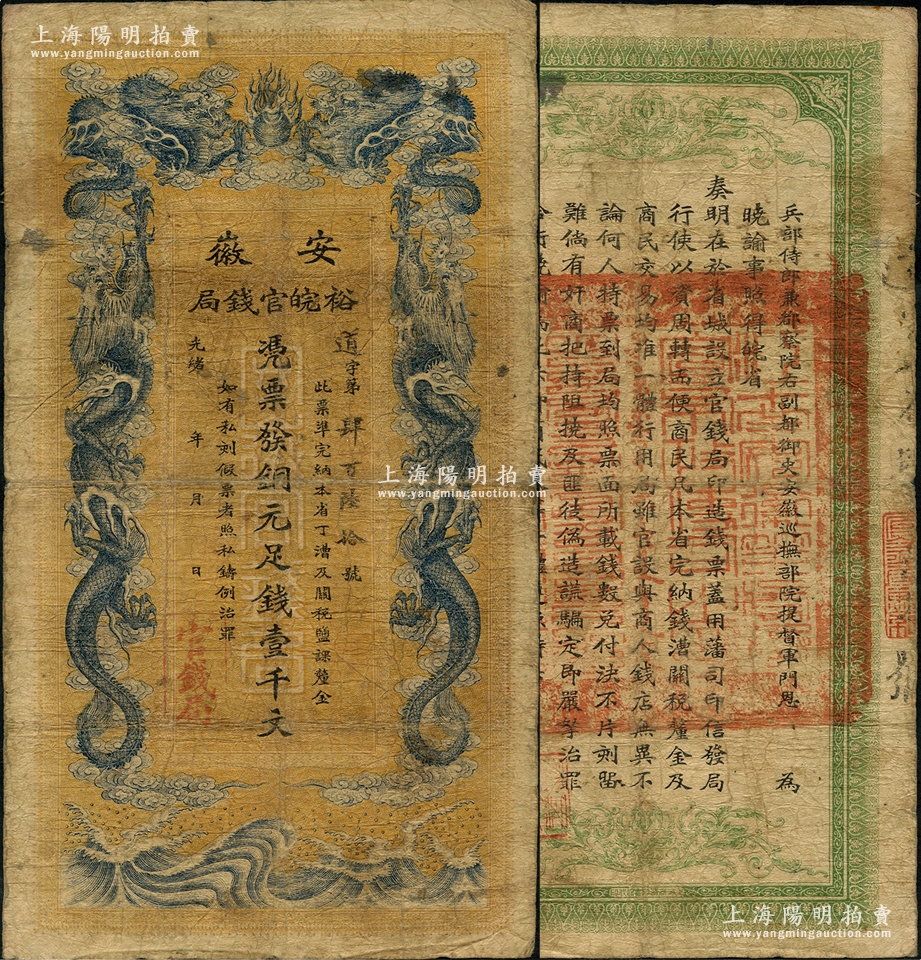 上海陽明拍賣
www.yangmingauction.com
安徽
裕皖官錢局
道字第肆百陸拾號
此票準完納本省丁漕及關稅鹽課釐金
憑票發銅元足錢壹千文
如有私刻假票者照私鑄例治罪
光緒 年 月 日
官錢局
兵部侍郎兼都察院右副都御史安徽巡撫部院提督軍門恩 為
曉諭事照得皖省
奏明在於省城設立官錢局印造錢票蓋用藩司印信發局
行使以資周轉而便商民凡本省完納錢漕關稅釐金及
商民交易均准一體行用局雖官設與商人錢店無異不
論何人持票到局均照票面所載錢數兌付決不片刻留
難倘有奸商把持阻撓及匪徒偽造誆騙定即嚴拏治罪
上海陽明拍賣
www.yangmingauction.com
上海陽明拍賣
www.yangmingauction.com